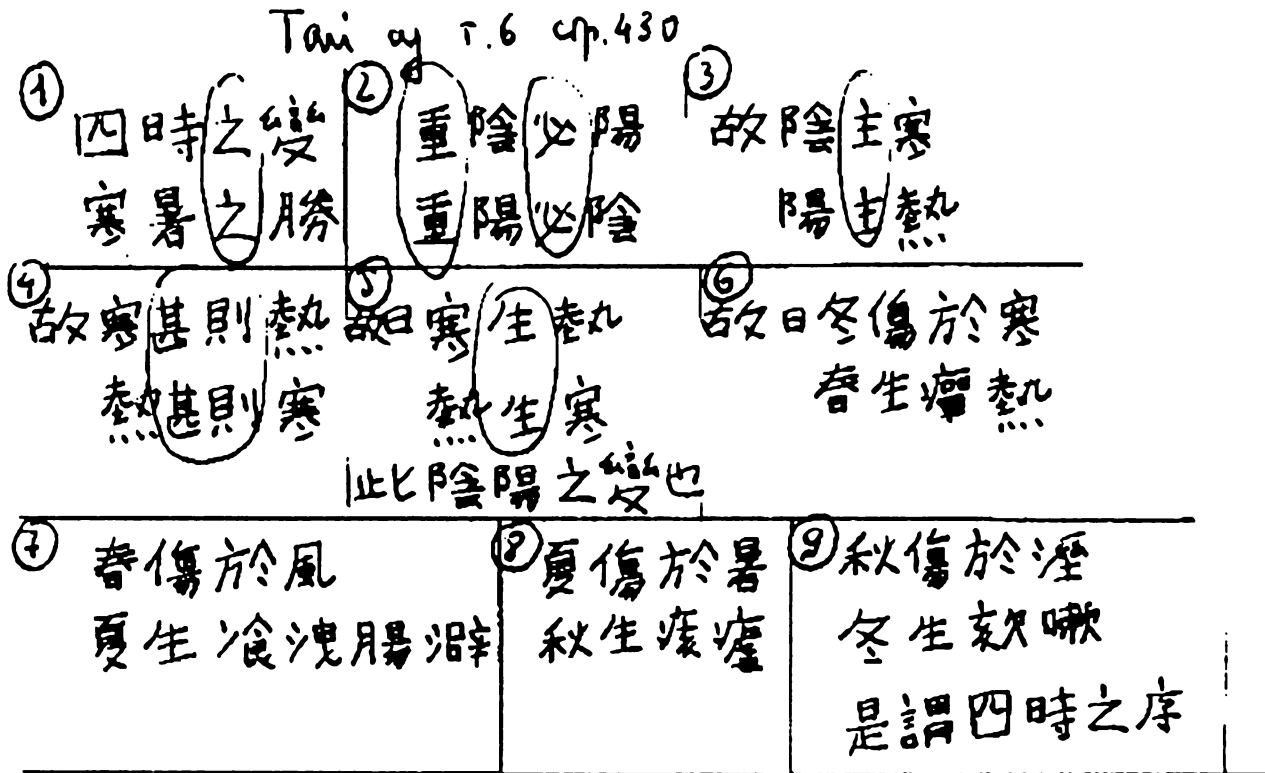 ① 四時之變
寒暑之勝
② 重陰必陽
重陽必陰
③ 故陰主寒
陽主熱
④ 故寒甚則熱
熱甚則寒
⑤ 故曰寒生熱
熱生寒
此陰陽之變也
⑥ 故曰冬傷於寒
春生癉熱
⑦ 春傷於風
夏生飧泄腸澼
⑧ 夏傷於暑
秋生痎瘧
⑨ 秋傷於溼
冬生欬嗽
是謂四時之序